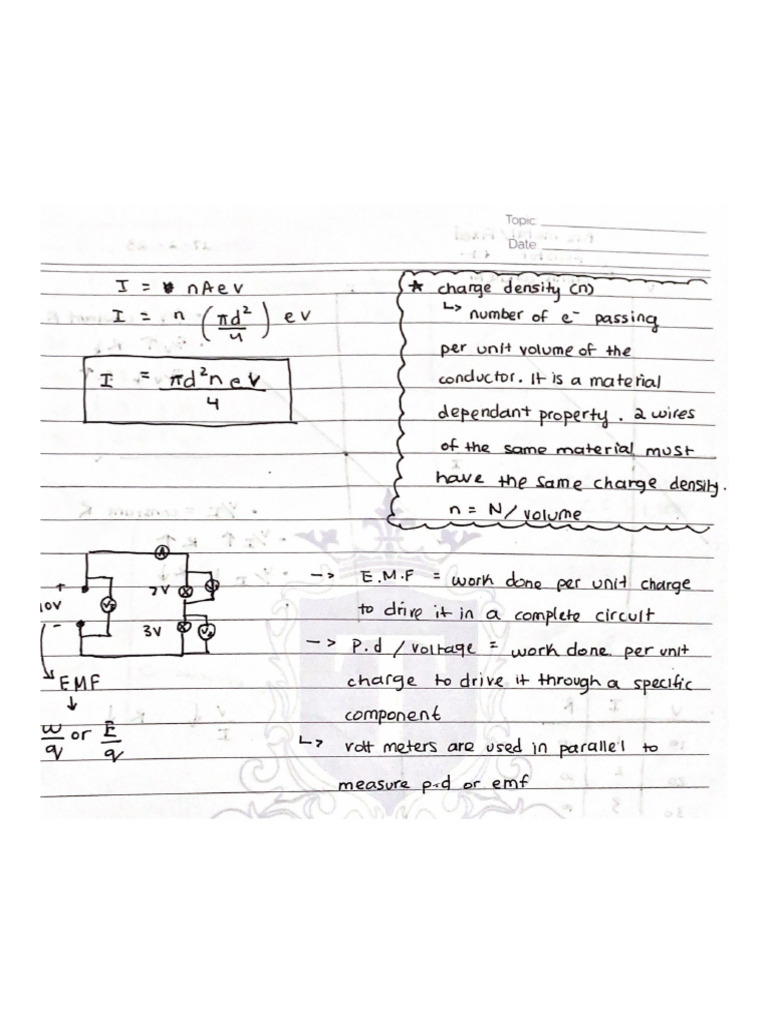 Topic
Date
I = nAev
I = n (πd²/4) ev
I = πd²nev/4
* charge density (n)
↳ number of e⁻ passing
per unit volume of the
conductor. It is a material
dependant property. 2 wires
of the same material must
have the same charge density.
n = N/volume
A
+
10V
-
7V
3V
EMF
↓
w/q or E/q
→ E.M.F = work done per unit charge
to drive it in a complete circuit
→ P.d / voltage = work done per unit
charge to drive it through a specific
component
↳ volt meters are used in parallel to
measure p.d or emf